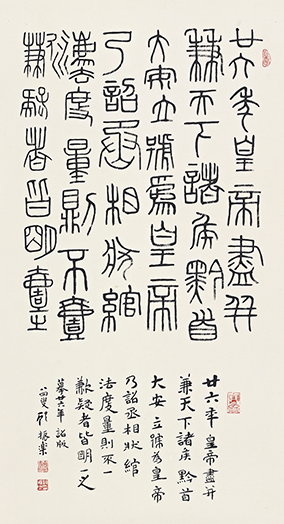 廿六年皇帝盡并
兼天下諸矦黔首
大安立號爲皇帝
乃詔丞相狀綰
灋度量則不壹
歉疑者皆明壹之
廿六年皇帝盡并
兼天下諸矦黔首
大安立號為皇帝
乃詔丞相狀綰
法度量則不一
歉疑者皆明一之
摹廿六年詔版
振樂